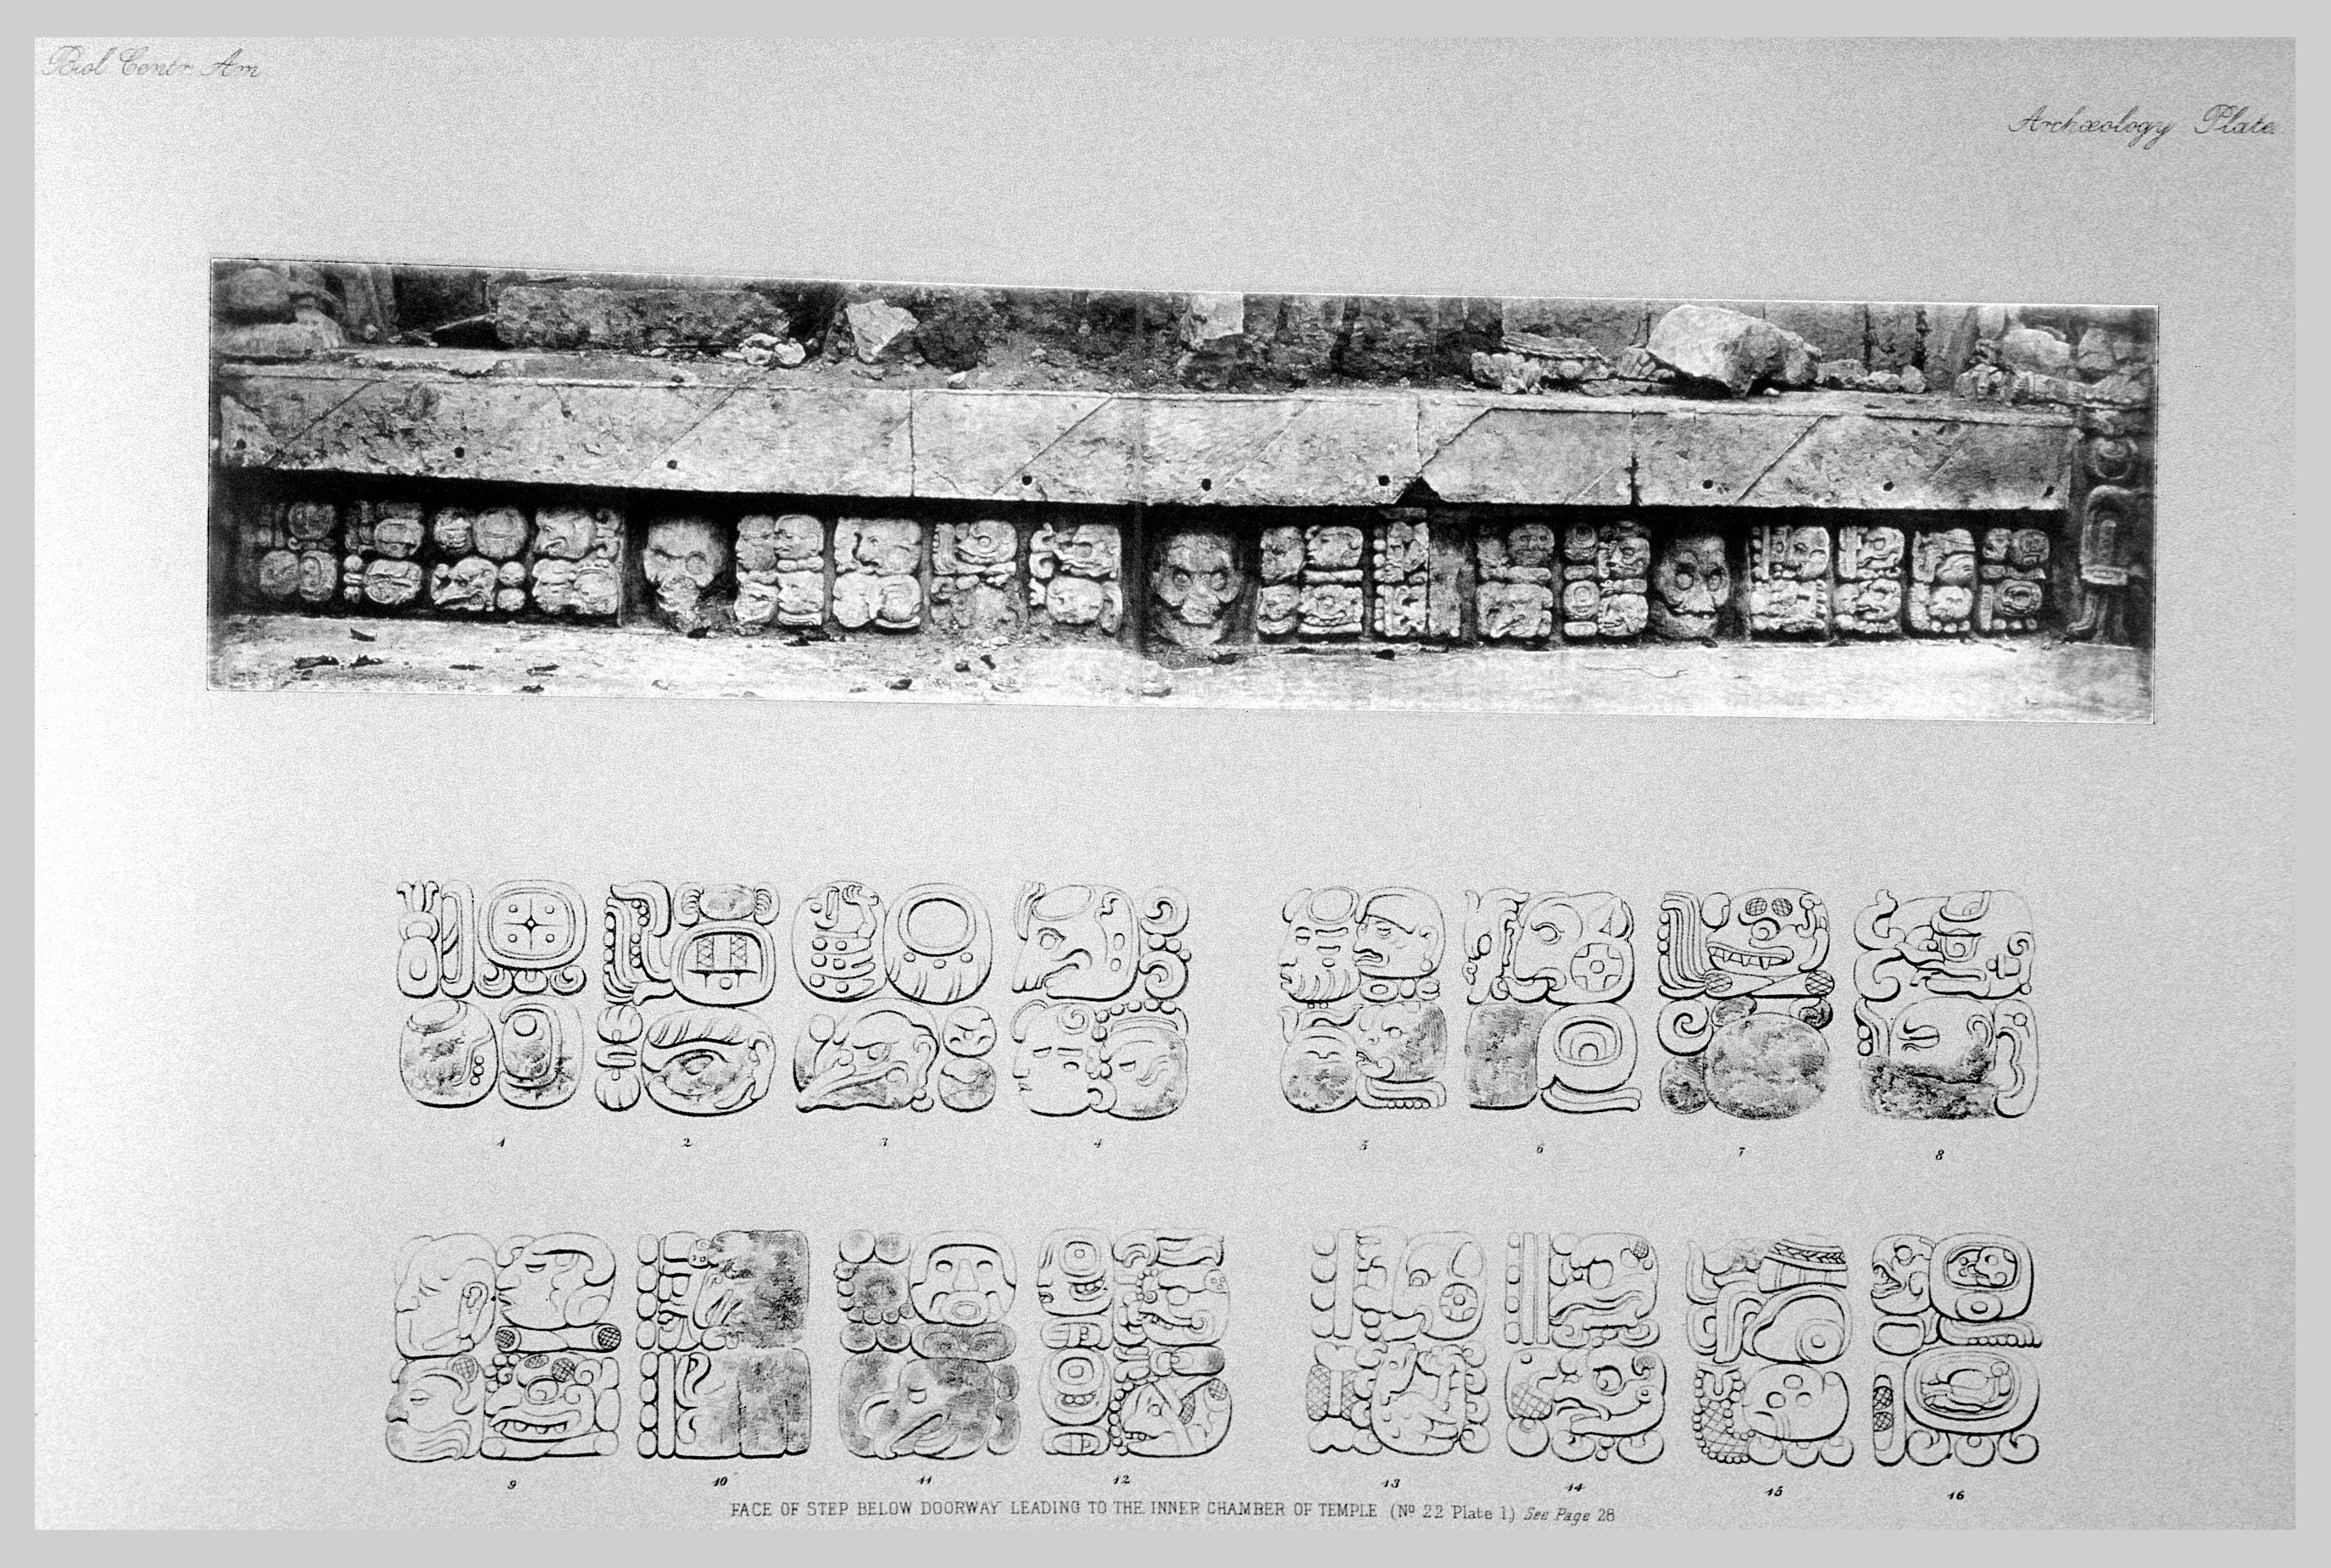 Biol Centr. Am
Archæology Plate
1 2 3 4 5 6 7 8
9 10 11 12 13 14 15 16
FACE OF STEP BELOW DOORWAY LEADING TO THE INNER CHAMBER OF TEMPLE (Nº 22 Plate 1.) See Page 28